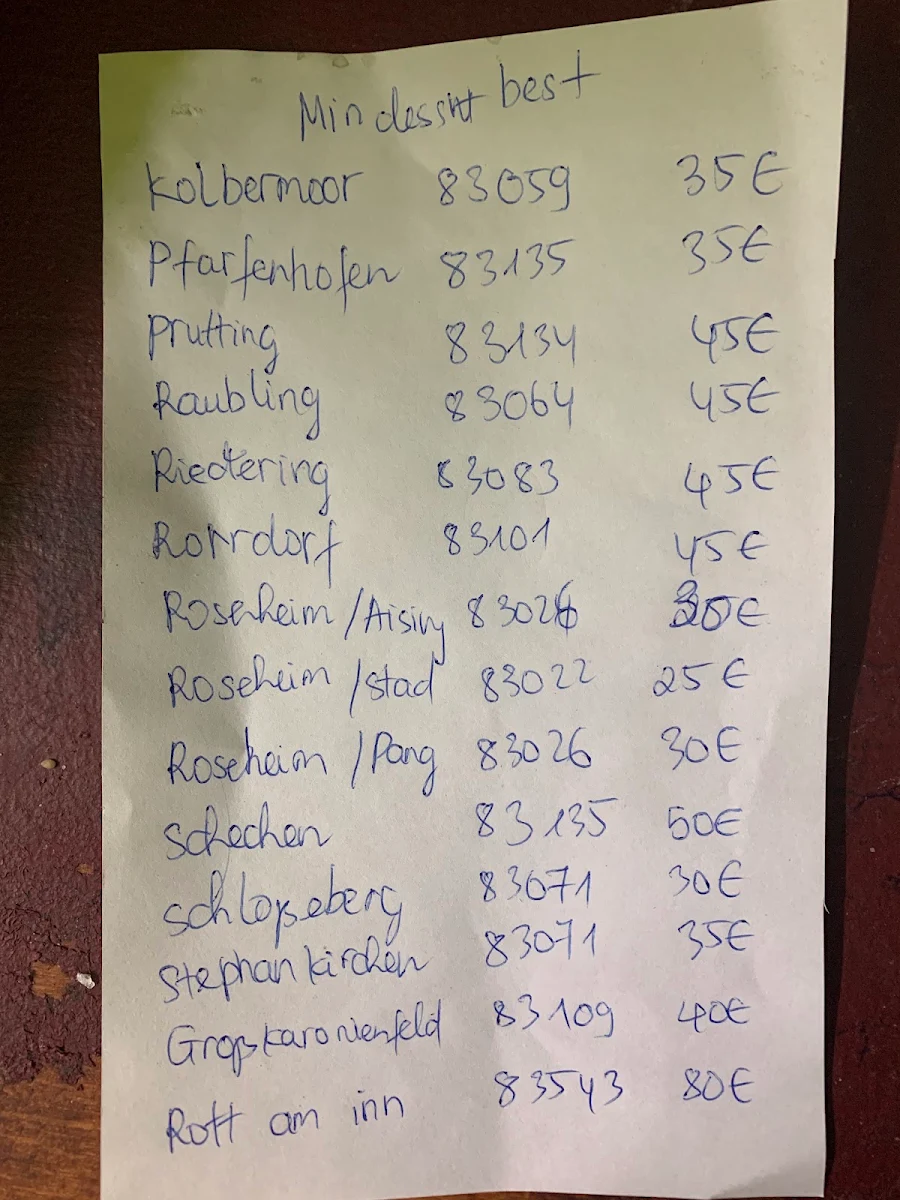 Mindesstt best
Kolbermoor 83059 35€
Pfarfenhofen 83135 35€
Prutting 83134 45€
Raubling 83064 45€
Riedtering 83083 45€
Rohrdorf 83101 45€
Rosenheim /Aising 83026 30€
Roseheim /stad 83022 25€
Roseheim /Pang 83026 30€
schechen 83135 50€
schloßeberg 83071 30€
Stephan kirchen 83071 35€
Großkaronienfeld 83109 40€
Rott am inn 83543 80€